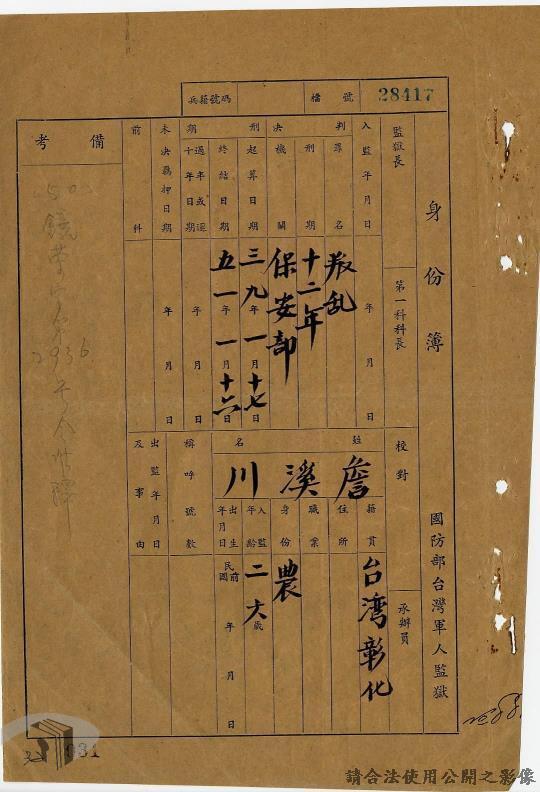 兵籍號碼
檔號 28417
身份簿
國防部台灣軍人監獄
監獄長
第一科科長
校對
承辦員
入監年月日 年月日
判決
罪名 叛乱
刑期 十二年
機關 保安部
刑期
起算日期 三九年一月十七日
終結日期 五一年一月十六日
過半或逾十年日期 年月日
未決羈押日期 年月日
前科
姓名 詹溪川
籍貫 台湾彰化
住所
職業
身份 農
入監年齡 二六歲
出生年月日 民國前 年月日
稱呼號數
出監年月日及事由
備考
2936
031
請合法使用公開之影像